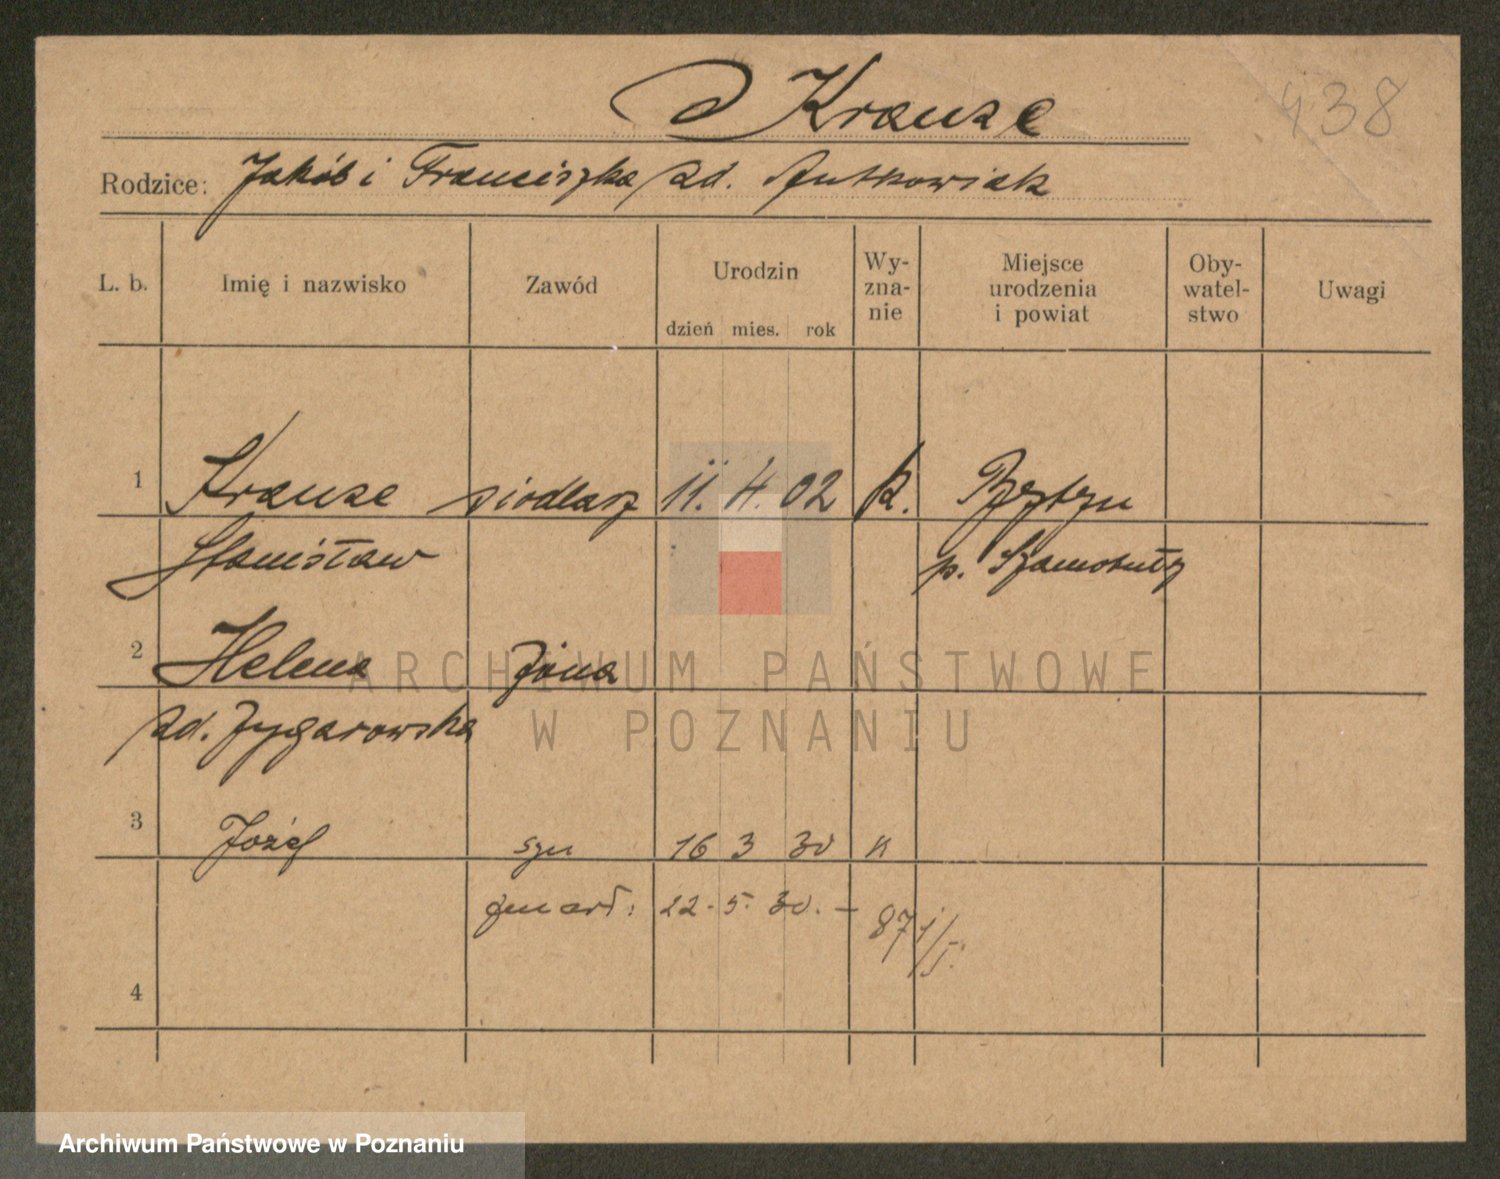 Krause
438
Rodzice: Jakób i Franciszka zd. Antkowiak
L. b. Imię i nazwisko Zawód Urodzin Wy-zna-nie Miejsce urodzenia i powiat Oby-watel-stwo Uwagi
dzień mies. rok
1 Krause siodlarz 11. 4. 02 k.
Stanisław p. Szamotuły
2 Helena żona
zd. Zygarowska
3 Józef syn 16 3 30 k
zmarł: 22. 5. 30. – 871/5.
4
ARCHIWUM PAŃSTWOWE
W POZNANIU
Archiwum Państwowe w Poznaniu